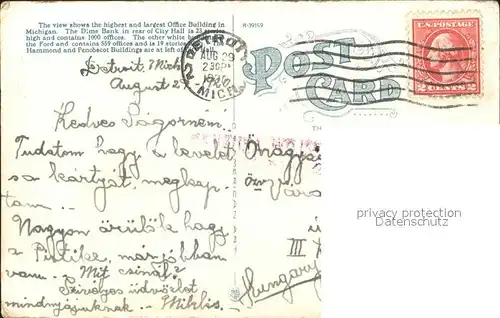 The view shows the highest and largest Office Building in
Michigan. The Dime Bank in rear of City Hall is 23 stories
high and contains 1000 offices. The other white building
the Ford and contains 559 offices and is 19 stories. The
Hammond and Penobscot Buildings are at left of City Hall.
R-39159
POST
CARD
DETROIT
AUG 29
230P
1920
MICH.
U.S. POSTAGE
2 CENTS 2
Detroit Mich.
August 29
Kedves Sógorném!
Tudatom hogy a levelet
s a kártyát, megkap-
tam.
Nagyon örülök hogy
a Pistike, már jobban
van. - Mit csinál?
Szivélyes üdvözlet
mindnyájuknak. - Miklós.
Őnagysá
özv.
III
Hungary
privacy protection
Datenschutz